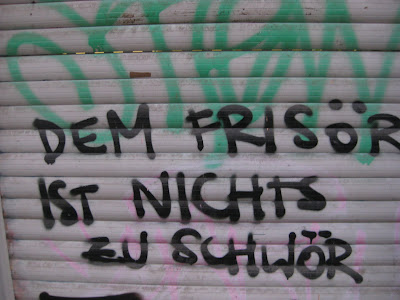 DEM FRISÖR
IST NICHTS
ZU SCHWÖR